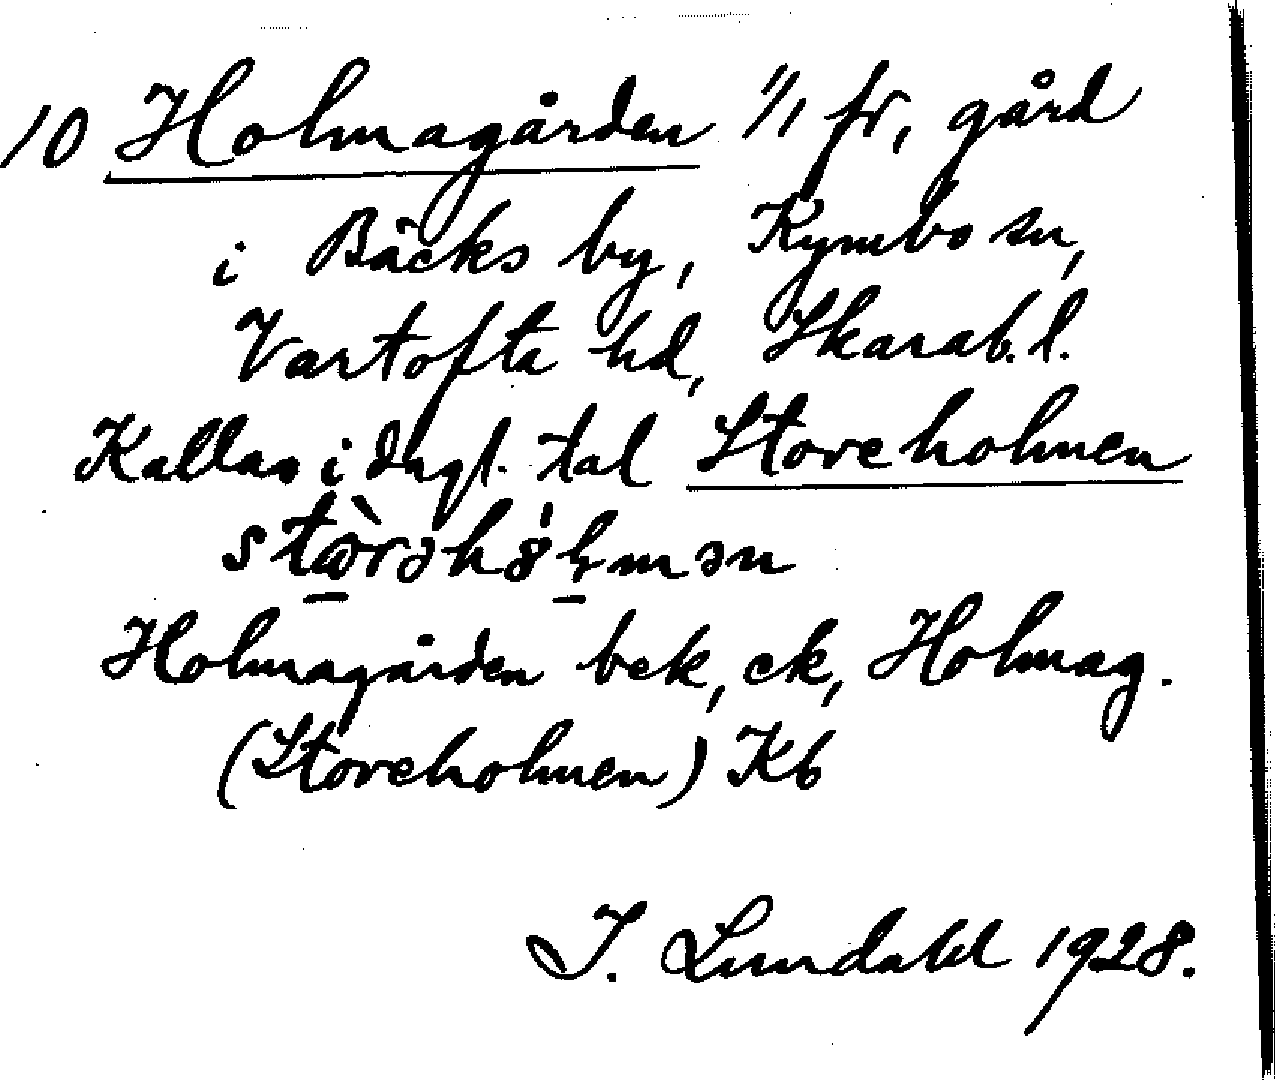 10 Holmagården 1/1 fr, gård
i Bäcks by, Kymbo sn,
Vartofta hd, Skarab.l.
Kallas i dagl. tal Storeholmen
Holmagården bek, ek, Holmag.
(Storeholmen) Kb
I. Lundahl 1928.